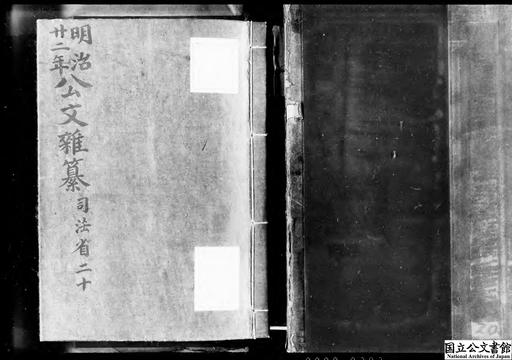 明治
廿二年
公文雜纂 司法省二十
国立公文書館
National Archives of Japan